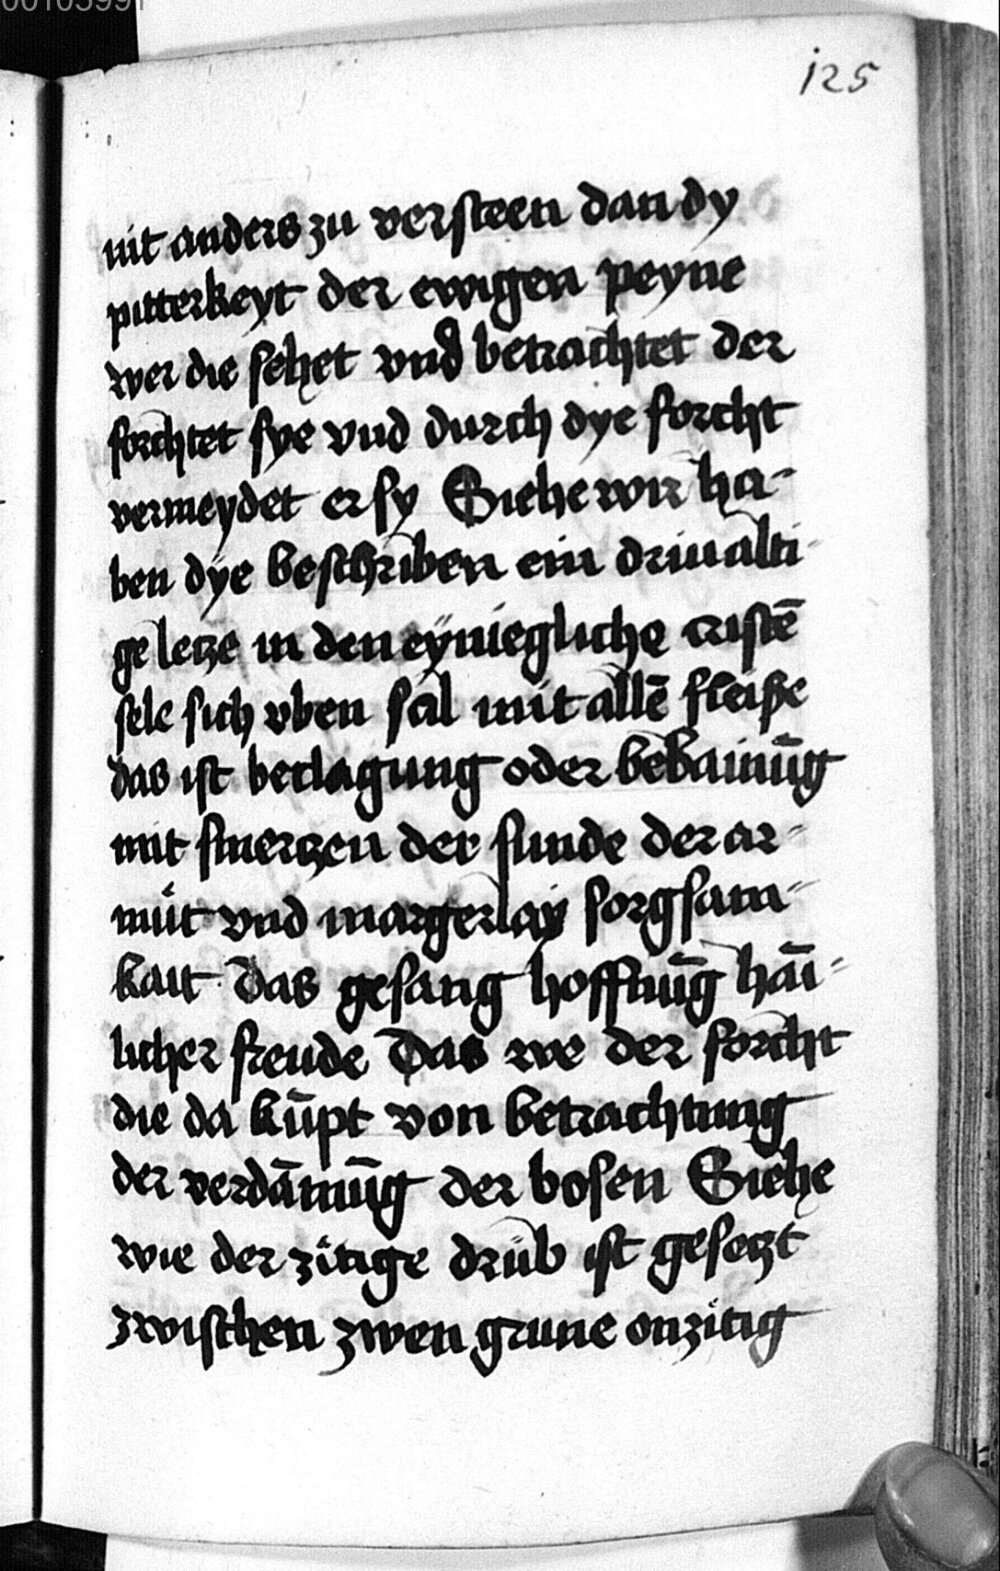 00103991
125
nit anders zu versteen dan dy
pitterkeyt der ewigen peyne
wer die sehet vnd betrachtet der
forchtet sye vnd durch dye forcht
vermeydet er sy Siehe wir ha-
ben dye beschriben ein driualti-
ge letze in den eyniegliche cristē
sele sich vben sal mit allē fleiße
das ist beclagung oder bebainūg
mit smertzen der sunde der ar-
mut vnd margerlay sorgsam-
kait Das gesang hoffnūg hāi-
licher freude Das we der forcht
die da kūpt von betrachtung
der verdāmūg der bosen Siehe
wie der zitige drüb ist gesetzt
zwischen zwen grune onzitig